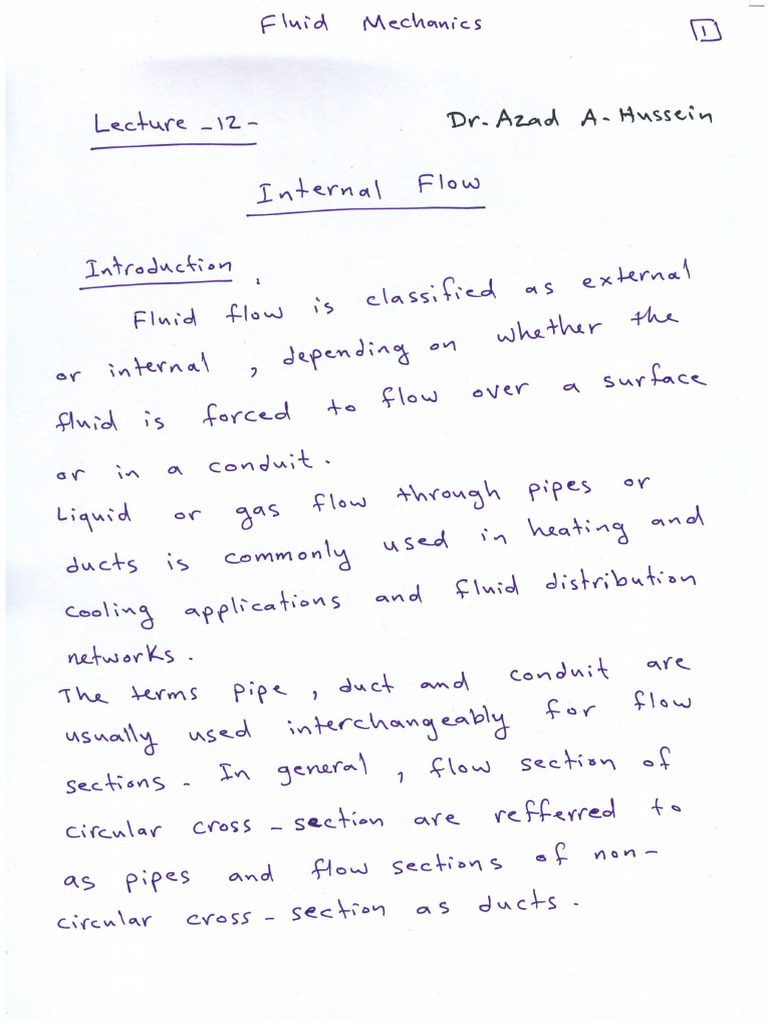 Fluid Mechanics
1
Lecture -12-
Dr. Azad A. Hussein
Internal Flow
Introduction.
Fluid flow is classified as external
or internal, depending on whether the
fluid is forced to flow over a surface
or in a conduit.
Liquid or gas flow through pipes or
ducts is commonly used in heating and
cooling applications and fluid distribution
networks.
The terms pipe, duct and conduit are
usually used interchangeably for flow
sections. In general, flow section of
circular cross-section are refferred to
as pipes and flow sections of non-
circular cross-section as ducts.